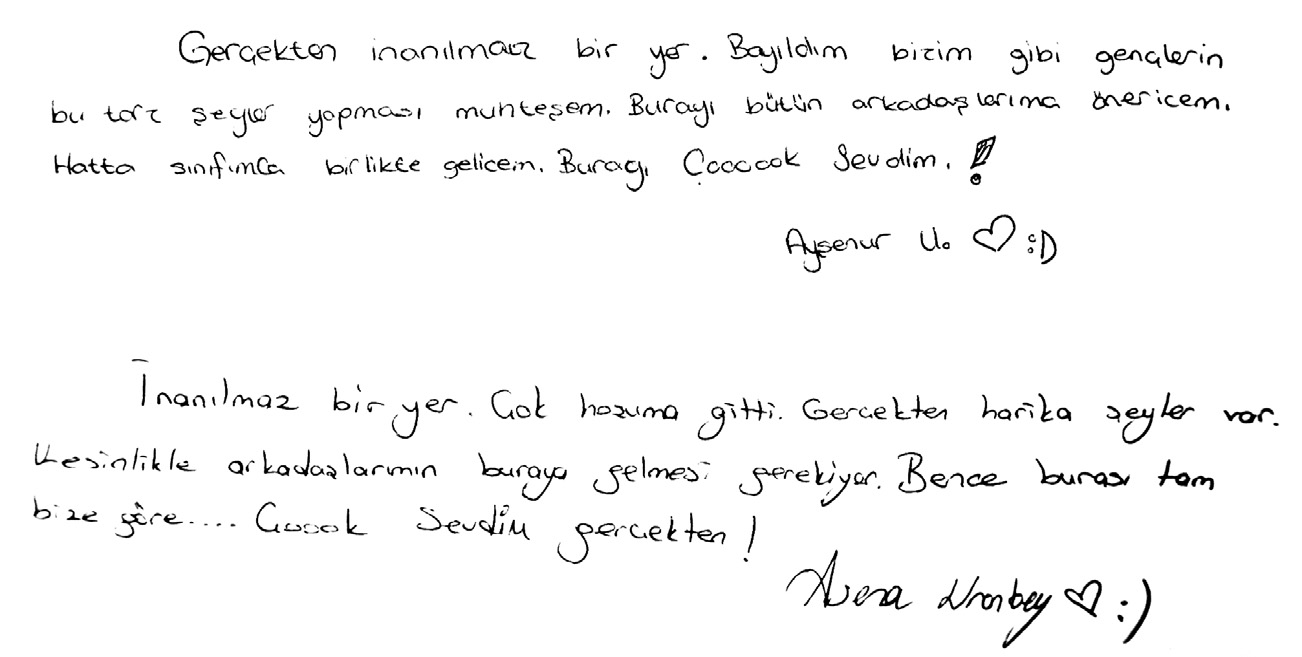 Gerçekten inanılmaz bir yer. Bayıldım bizim gibi gençlerin
bu tarz şeyler yapması muhteşem. Burayı bütün arkadaşlarıma önericem.
Hatta sınıfımla birlikte gelicem. Burayı Çoooook Sevdim. !
Ayşenur U. ♡ :D
İnanılmaz bir yer. Cok hosuma gitti. Gercekten harika şeyler var.
Kesinlikle arkadaşlarımın buraya gelmesi gerekiyor. Bence burası tam
bize göre.... Cooook Sevdim gercekten!
♡ :)